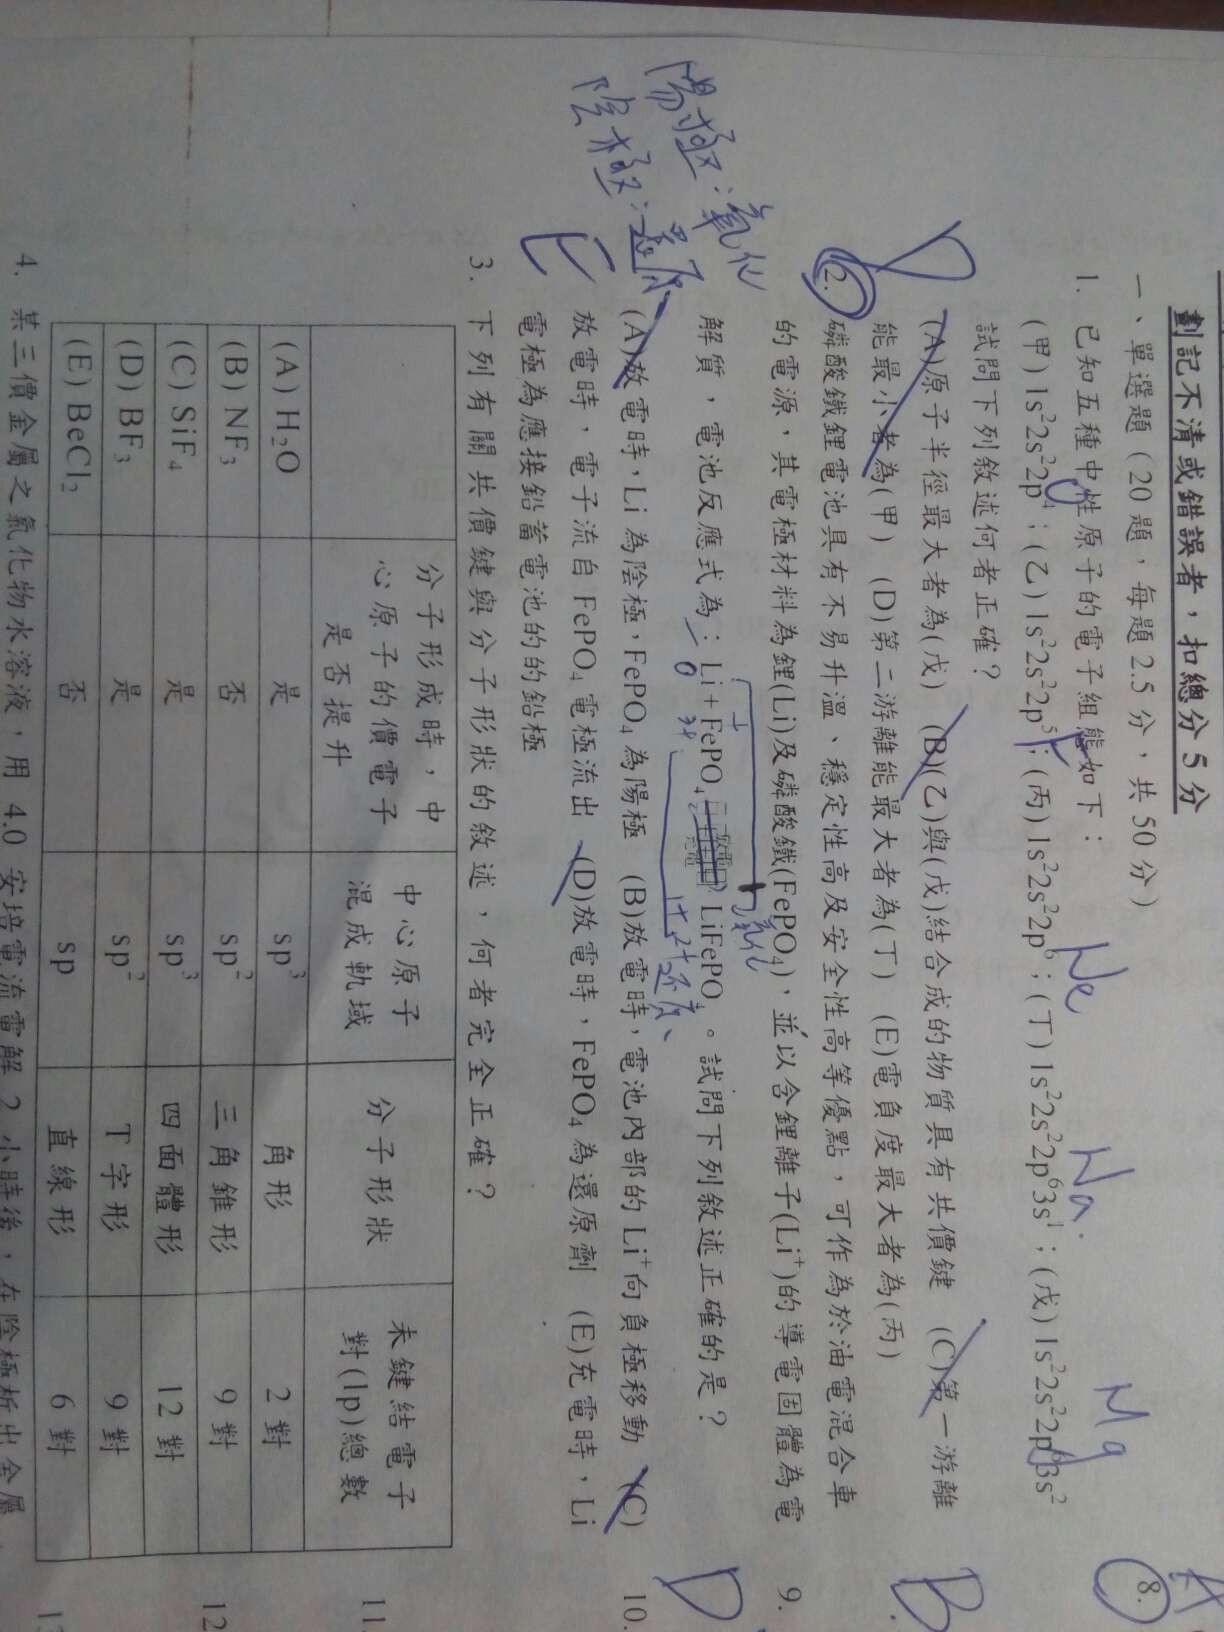 劃記不清或錯誤者，扣總分 5 分
一、單選題（20 題，每題 2.5 分，共 50 分）
1. 已知五種中性原子的電子組態如下：
(甲) 1s²2s²2p⁴；(乙) 1s²2s²2p⁵；(丙) 1s²2s²2p⁶；(丁) 1s²2s²2p⁶3s¹；(戊) 1s²2s²2p⁶3s²
O
F
Ne
Na
Mg
試問下列敘述何者正確？
D
(A)原子半徑最大者為(戊) (B)(乙)與(戊)結合成的物質具有共價鍵 (C)第一游離
能最小者為(甲) (D)第二游離能最大者為(丁) (E)電負度最大者為(丙)
2. 磷酸鐵鋰電池具有不易升溫、穩定性高及安全性高等優點，可作為於油電混合車
的電源，其電極材料為鋰(Li)及磷酸鐵(FePO₄)，並以含鋰離子(Li⁺)的導電固體為電
解質，電池反應式為：Li + FePO₄ 放電 充電 LiFePO₄。試問下列敘述正確的是？
氧化
0
1+
3+
2+
還原
陽極：氧化
陰極：還原
E
(A)放電時，Li 為陰極，FePO₄ 為陽極 (B)放電時，電池內部的 Li⁺向負極移動 (C)
放電時，電子流自 FePO₄ 電極流出 (D)放電時，FePO₄ 為還原劑 (E)充電時，Li
電極為應接鉛蓄電池的的鉛極
3. 下列有關共價鍵與分子形狀的敘述，何者完全正確？
分子形成時，中心原子的價電子是否提升 中心原子混成軌域 分子形狀 未鍵結電子對(lp)總數
(A) H₂O 是 sp³ 角形 2 對
(B) NF₃ 否 sp² 三角錐形 9 對
(C) SiF₄ 是 sp³ 四面體形 12 對
(D) BF₃ 是 sp² T 字形 9 對
(E) BeCl₂ 否 sp 直線形 6 對
4. 某三價金屬之氯化物水溶液，用 4.0 安培電流電解 2 小時後，在陰極析出金屬
A
8.
B
9.
D
10.
11.
12